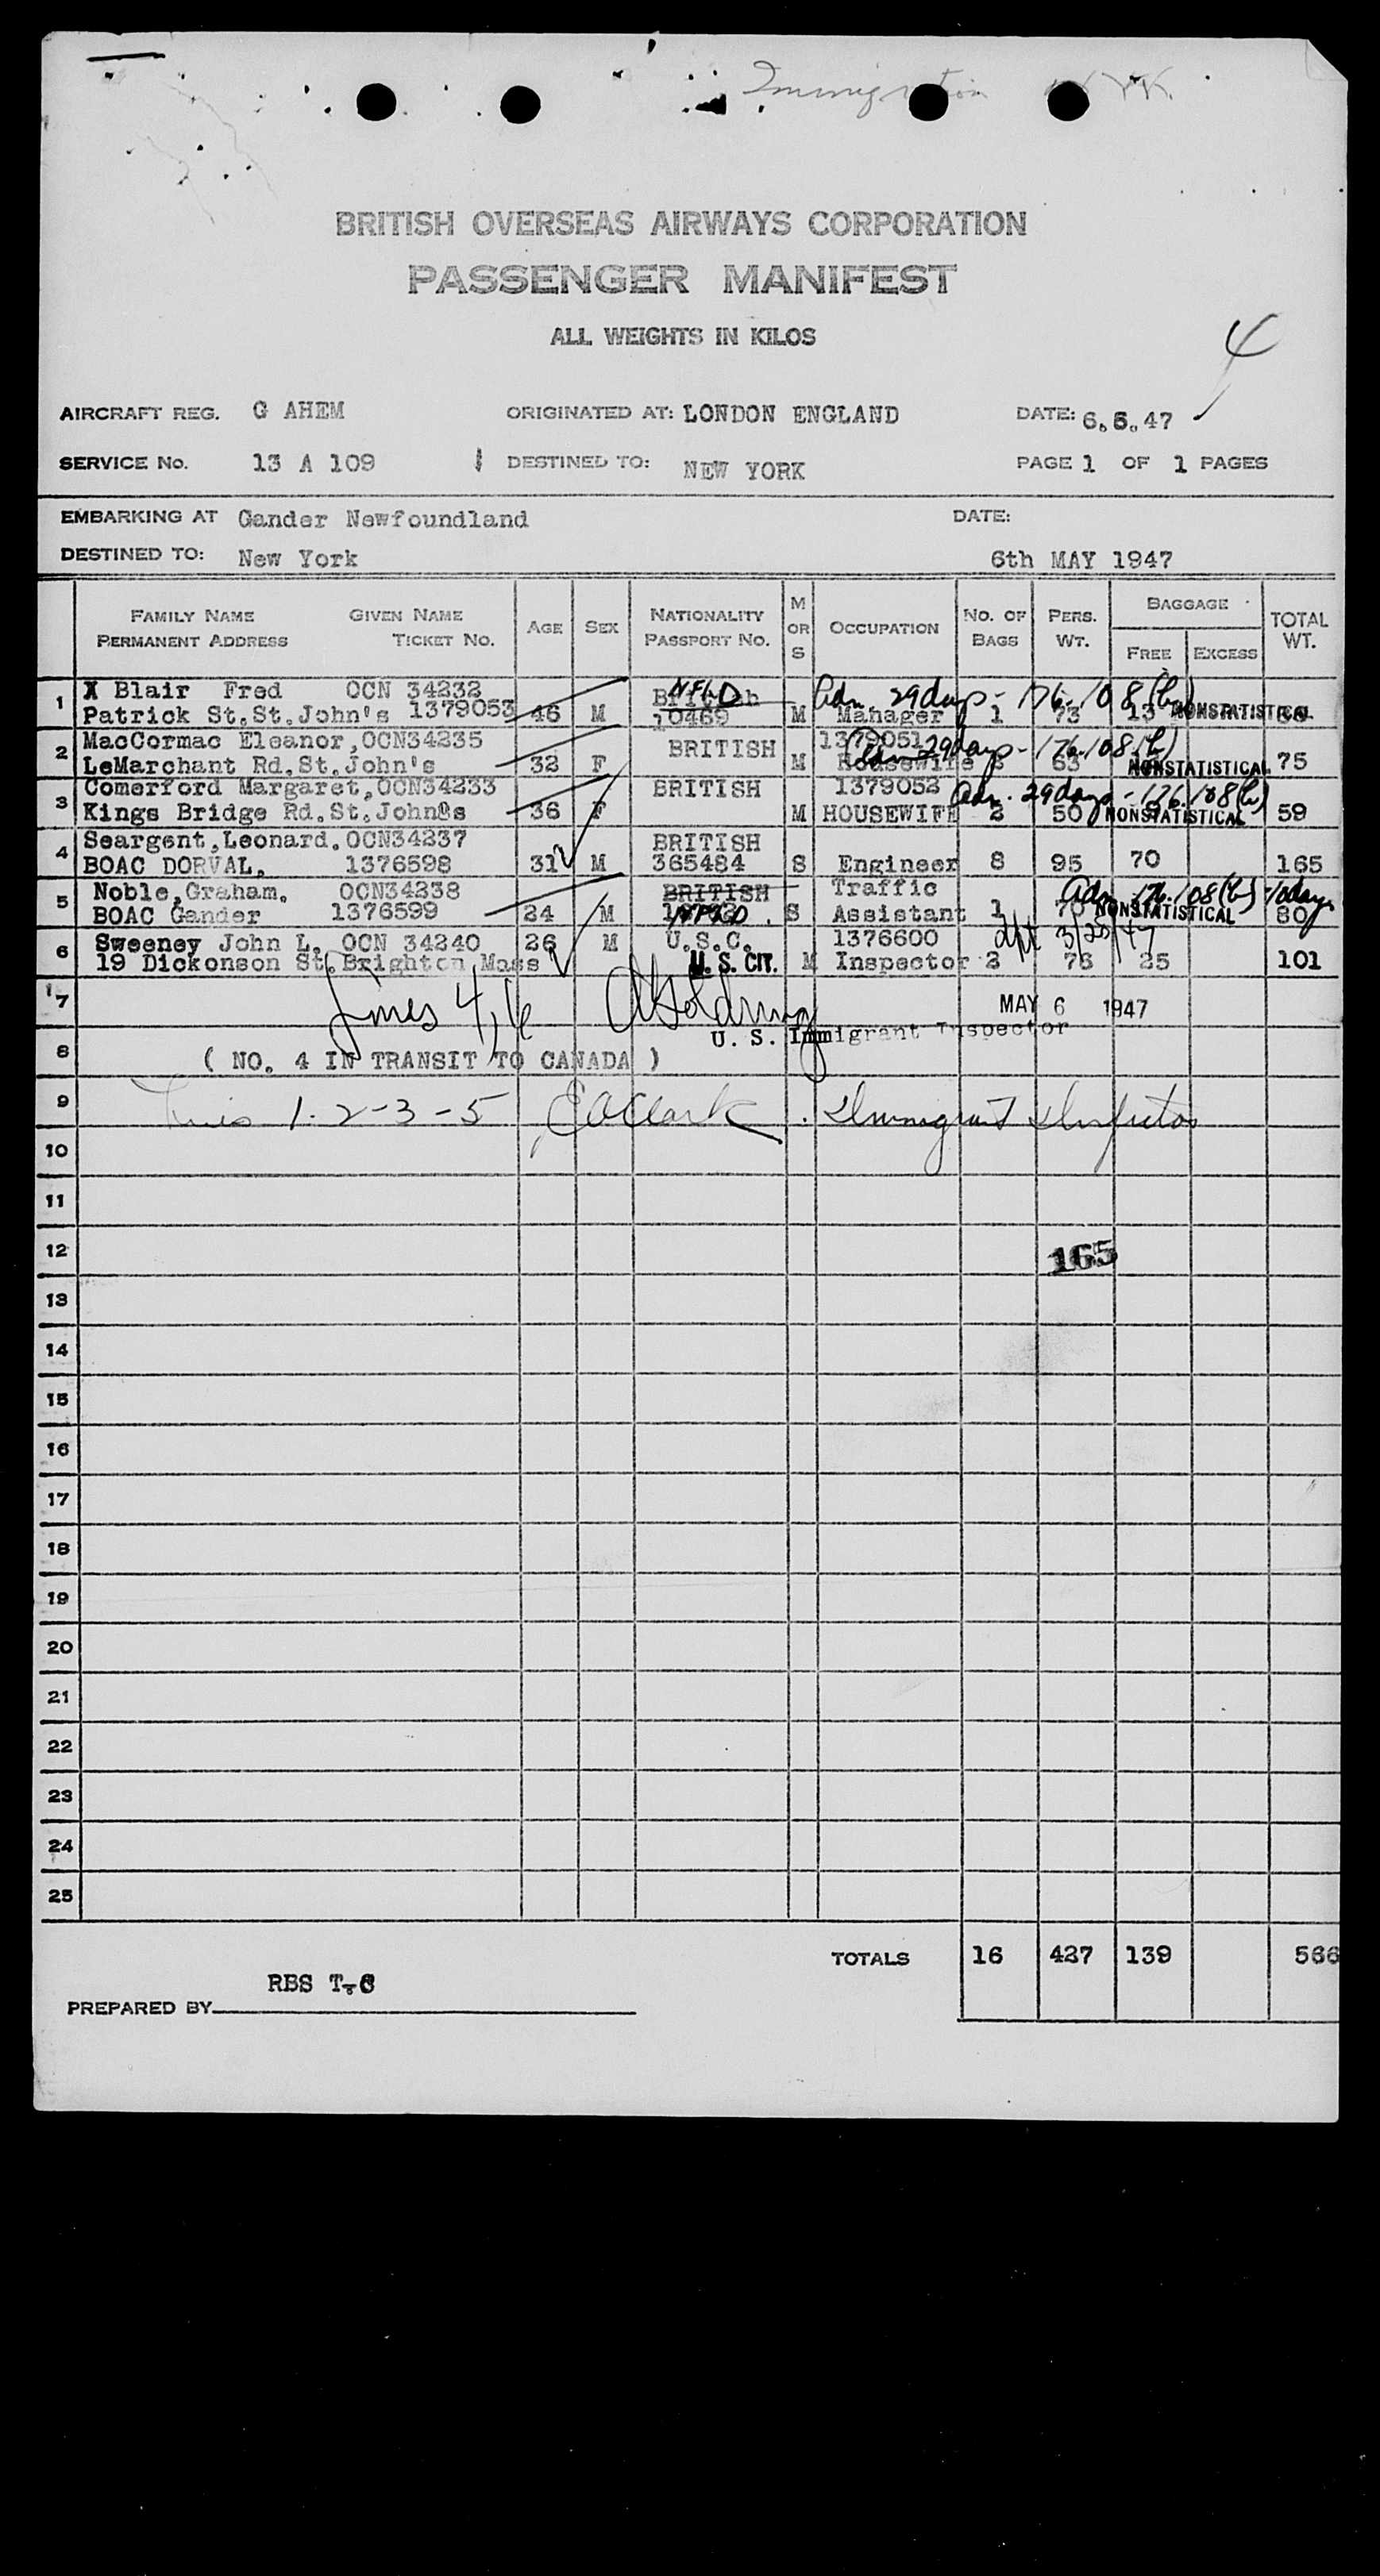 Immigration
BRITISH OVERSEAS AIRWAYS CORPORATION
PASSENGER MANIFEST
ALL WEIGHTS IN KILOS
4
AIRCRAFT REG. G AHEM ORIGINATED AT: LONDON ENGLAND DATE: 6.5.47
SERVICE No. 13 A 109 DESTINED TO: NEW YORK PAGE 1 OF 1 PAGES
EMBARKING AT Gander Newfoundland DATE:
DESTINED TO: New York 6th MAY 1947
FAMILY NAME GIVEN NAME AGE SEX NATIONALITY M OR S OCCUPATION NO. OF BAGS PERS. WT. BAGGAGE TOTAL WT.
PERMANENT ADDRESS TICKET NO. PASSPORT NO. FREE EXCESS
1 X Blair Fred OCN 34232 British NFLD Adm 29 days - 176.108(b)
Patrick St. St. John's 1379053 46 M 10469 M Manager 1 73 13 NONSTATISTICAL
2 MacCormac Eleanor, OCN34235 BRITISH 1379051 Adm 29 days - 176.108(b)
LeMarchant Rd. St. John's 32 F M Housewife 63 NONSTATISTICAL 75
3 Comerford Margaret, OCN34233 BRITISH 1379052 Adm. 29 days - 176.108(b)
Kings Bridge Rd. St. John@s 36 F M HOUSEWIFE 2 50 NONSTATISTICAL 59
4 Seargent, Leonard. OCN34237 BRITISH
BOAC DORVAL. 1376598 31 M 365484 S Engineer 8 95 70 165
5 Noble, Graham. OCN34238 BRITISH Traffic Adm 176.108(b) - 10 days
BOAC Gander 1376599 24 M NFLD S Assistant 1 NONSTATISTICAL 80
6 Sweeney John L. OCN 34240 26 M U.S.C. 1376600 3/25/47
19 Dickonson St. Brighton Mass U. S. CIT. M Inspector 2 76 25 101
7 Lines 4, 6 MAY 6 1947
U. S. Immigrant Inspector
8 ( NO. 4 IN TRANSIT TO CANADA )
9 Lines 1-2-3-5 E O Clark Immigrant Inspector
10
11
12 165
13
14
15
16
17
18
19
20
21
22
23
24
25
TOTALS 16 427 139 566
RBS T.C
PREPARED BY